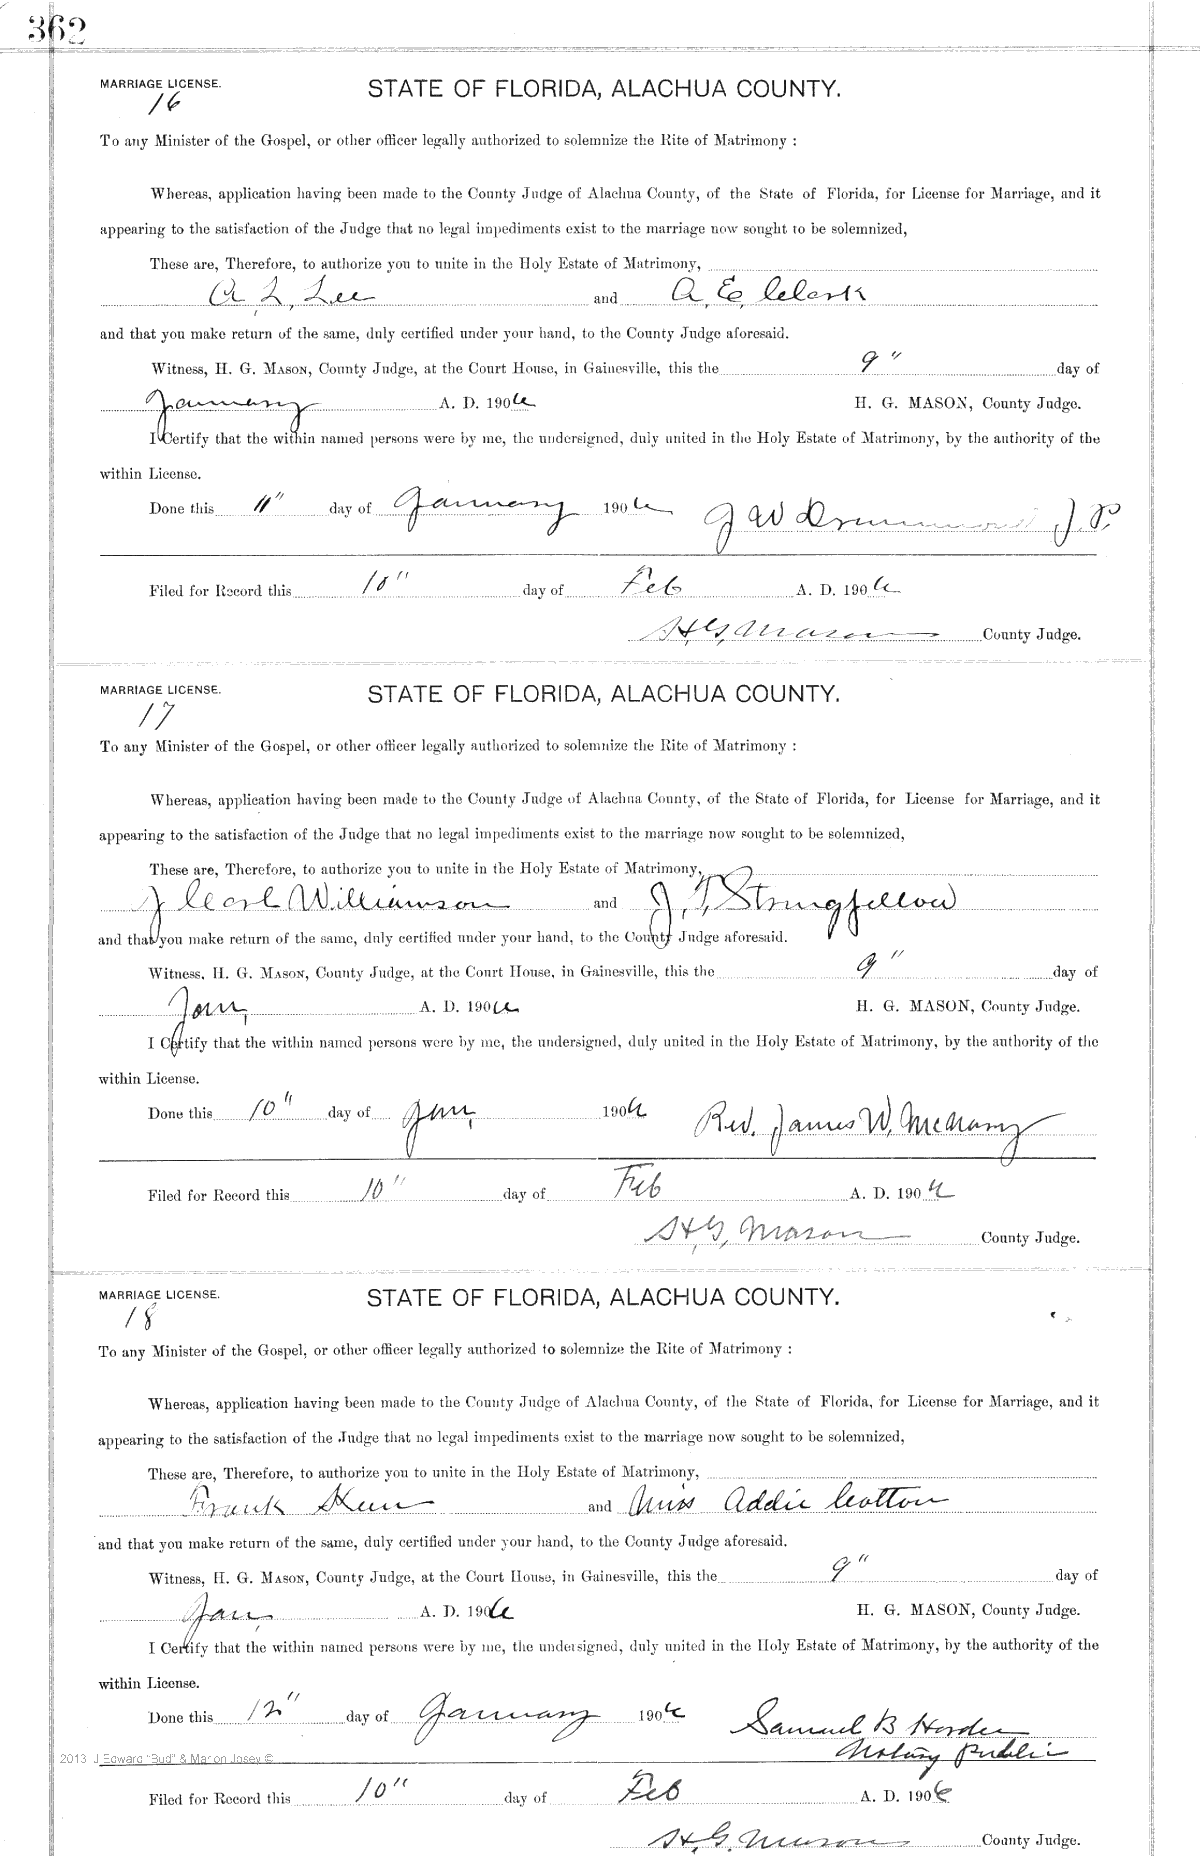 362
MARRIAGE LICENSE.
16
STATE OF FLORIDA, ALACHUA COUNTY.
To any Minister of the Gospel, or other officer legally authorized to solemnize the Rite of Matrimony :
Whereas, application having been made to the County Judge of Alachua County, of the State of Florida, for License for Marriage, and it
appearing to the satisfaction of the Judge that no legal impediments exist to the marriage now sought to be solemnized,
These are, Therefore, to authorize you to unite in the Holy Estate of Matrimony,
A. L. Lee and A. E. Clark
and that you make return of the same, duly certified under your hand, to the County Judge aforesaid.
Witness, H. G. MASON, County Judge, at the Court House, in Gainesville, this the 9" day of
January A. D. 1906 H. G. MASON, County Judge.
I Certify that the within named persons were by me, the undersigned, duly united in the Holy Estate of Matrimony, by the authority of the
within License.
Done this 11" day of January 1906 J W Drummond J. P.
Filed for Record this 10" day of Feb A. D. 1906
H. G. Mason County Judge.
MARRIAGE LICENSE.
17
STATE OF FLORIDA, ALACHUA COUNTY.
To any Minister of the Gospel, or other officer legally authorized to solemnize the Rite of Matrimony :
Whereas, application having been made to the County Judge of Alachua County, of the State of Florida, for License for Marriage, and it
appearing to the satisfaction of the Judge that no legal impediments exist to the marriage now sought to be solemnized,
These are, Therefore, to authorize you to unite in the Holy Estate of Matrimony,
J Carl Williamson and J. T. Stringfellow
and that you make return of the same, duly certified under your hand, to the County Judge aforesaid.
Witness, H. G. MASON, County Judge, at the Court House, in Gainesville, this the 9" day of
Jan, A. D. 1906 H. G. MASON, County Judge.
I Certify that the within named persons were by me, the undersigned, duly united in the Holy Estate of Matrimony, by the authority of the
within License.
Done this 10" day of Jan, 1906 Rev. James W.
Filed for Record this 10" day of Feb A. D. 1906
H. G. Mason County Judge.
MARRIAGE LICENSE.
18
STATE OF FLORIDA, ALACHUA COUNTY.
To any Minister of the Gospel, or other officer legally authorized to solemnize the Rite of Matrimony :
Whereas, application having been made to the County Judge of Alachua County, of the State of Florida, for License for Marriage, and it
appearing to the satisfaction of the Judge that no legal impediments exist to the marriage now sought to be solemnized,
These are, Therefore, to authorize you to unite in the Holy Estate of Matrimony,
Frank and Miss Addie Cotton
and that you make return of the same, duly certified under your hand, to the County Judge aforesaid.
Witness, H. G. MASON, County Judge, at the Court House, in Gainesville, this the 9" day of
Jan, A. D. 1906 H. G. MASON, County Judge.
I Certify that the within named persons were by me, the undersigned, duly united in the Holy Estate of Matrimony, by the authority of the
within License.
Done this 12" day of January 1906 Samuel B
Notary Public
2013 J Edward "Bud" & Marion Josey ©
Filed for Record this 10" day of Feb A. D. 1906
H. G. Mason County Judge.